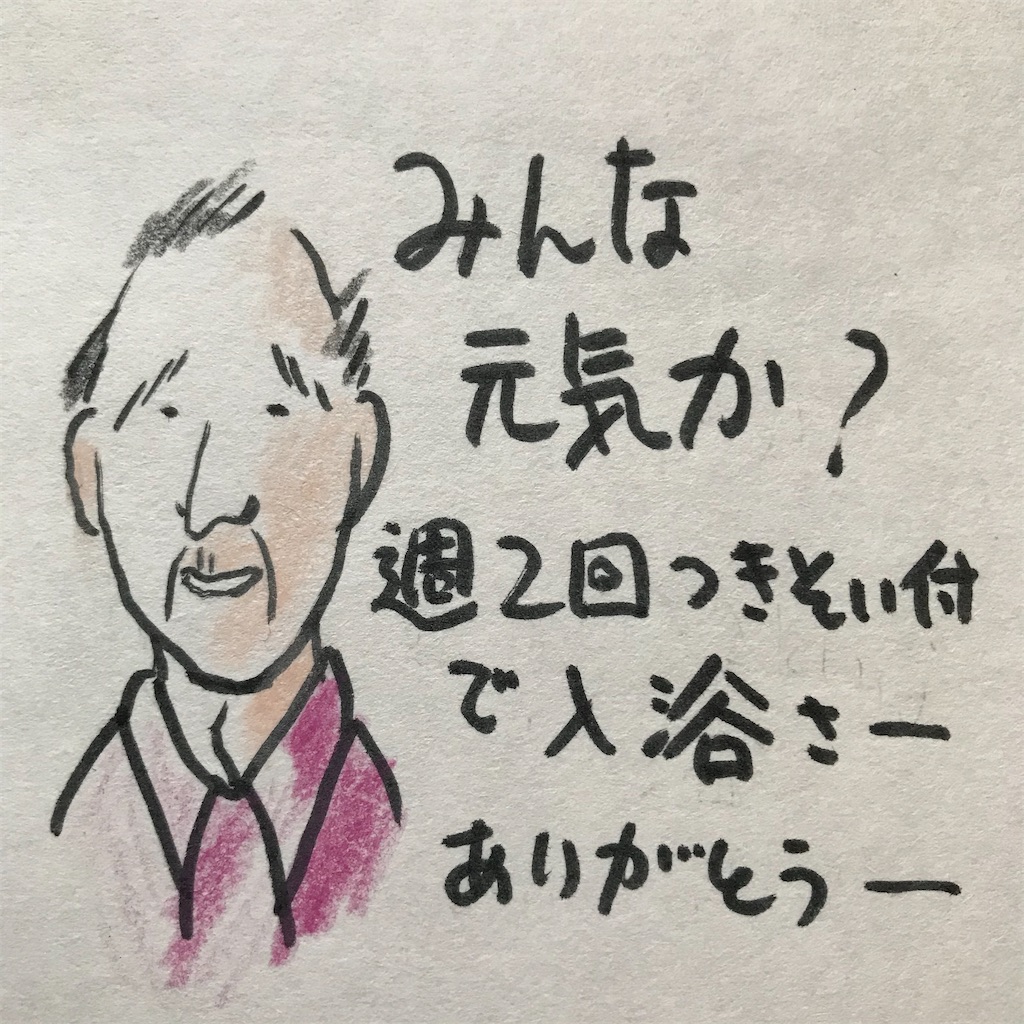 みんな
元気か?
週2回つきそい付
で入浴さー
ありがとうー